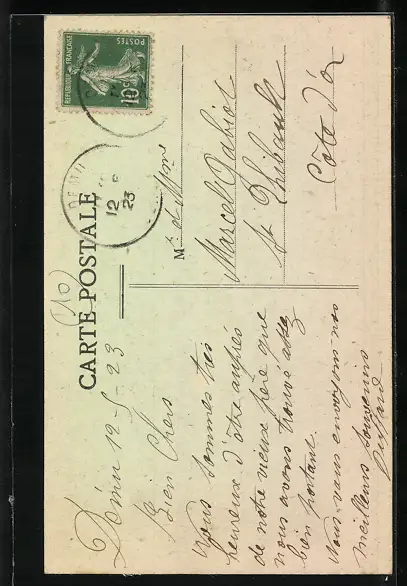 CARTE POSTALE
(10)
REPUBLIQUE FRANÇAISE
POSTES
10c
12
23
Dému 12-5-23
Bien Chers
Nous sommes très
heureux d'être auprès
de notre vieux père que
nous avons trouvé assez
bien portant.
Nous vous envoyons nos
meilleurs souvenirs
M r et Mme
Marcel Gabiot
St Thibault
Côte d'Or